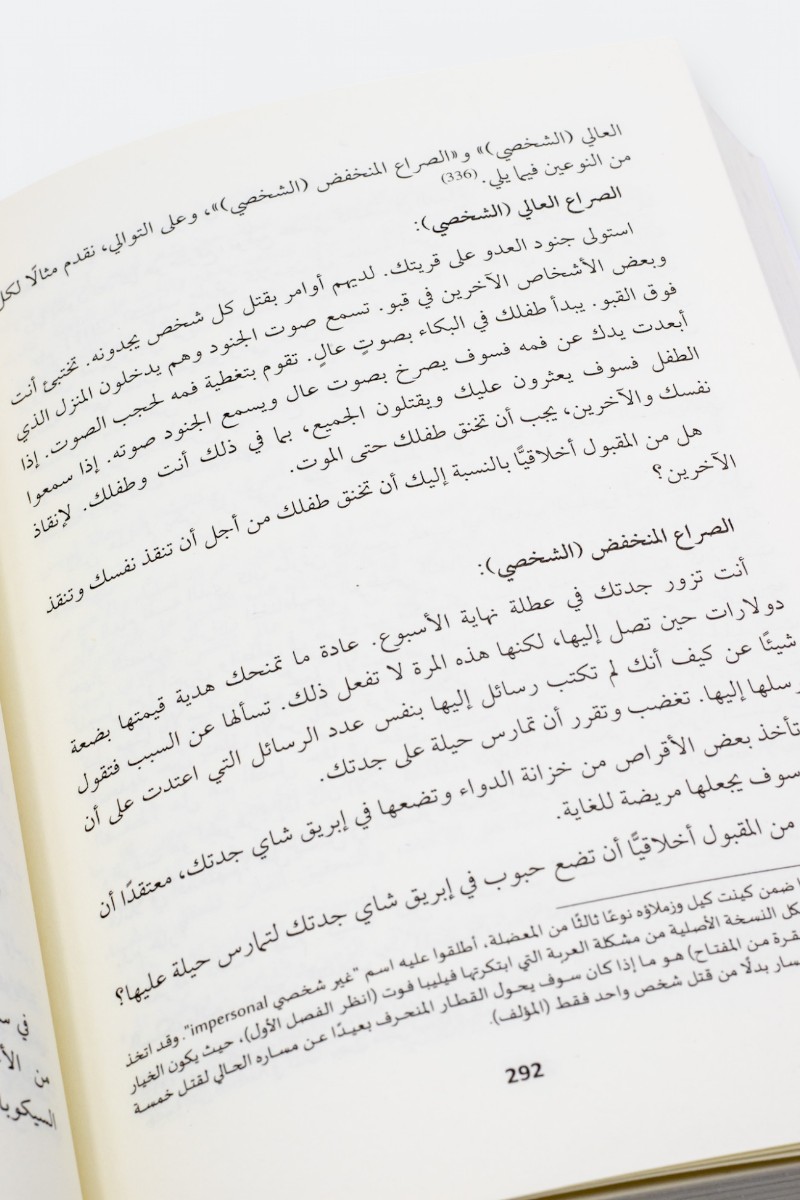 العالي (الشخصي)» و«الصراع المنخفض (الشخصي)»، وعلى التوالي، نقدم مثالًا لكل
من النوعين فيما يلي. (336)
الصراع العالي (الشخصي):
استولى جنود العدو على قريتك. لديهم أوامر بقتل كل شخص يجدونه. تختبئ أنت
وبعض الأشخاص الآخرين في قبو. تسمع صوت الجنود وهم يدخلون المنزل الذي
فوق القبو. يبدأ طفلك في البكاء بصوتٍ عالٍ. تقوم بتغطية فمه لحجب الصوت. إذا
أبعدت يدك عن فمه فسوف يصرخ بصوت عال ويسمع الجنود صوته. إذا سمعوا
الطفل فسوف يعثرون عليك ويقتلون الجميع، بما في ذلك أنت وطفلك. لإنقاذ
نفسك والآخرين، يجب أن تخنق طفلك حتى الموت.
هل من المقبول أخلاقيًّا بالنسبة إليك أن تخنق طفلك من أجل أن تنقذ نفسك وتنقذ
الآخرين؟
الصراع المنخفض (الشخصي):
أنت تزور جدتك في عطلة نهاية الأسبوع. عادة ما تمنحك هدية قيمتها بضعة
دولارات حين تصل إليها، لكنها هذه المرة لا تفعل ذلك. تسألها عن السبب فتقول
شيئًا عن كيف أنك لم تكتب رسائل إليها بنفس عدد الرسائل التي اعتدت على أن
رسلها إليها. تغضب وتقرر أن تمارس حيلة على جدتك.
تأخذ بعض الأقراص من خزانة الدواء وتضعها في إبريق شاي جدتك، معتقدًا أن
سوف يجعلها مريضة للغاية.
من المقبول أخلاقيًّا أن تضع حبوب في إبريق شاي جدتك لتمارس حيلة عليها؟
ضمن كينت كيل وزملاؤه نوعًا ثالثًا من المعضلة، أطلقوا عليه اسم "غير شخصي impersonal". وقد اتخذ
كل النسخة الأصلية من مشكلة العربة التي ابتكرتها فيليبا فوت (انظر الفصل الأول)، حيث يكون الخيار
قرة من المفتاح) هو ما إذا كان سوف يحول القطار المنحرف بعيدًا عن مساره الحالي لقتل خمسة
سار بدلًا من قتل شخص واحد فقط (المؤلف).
292
في
من
السيكوبا